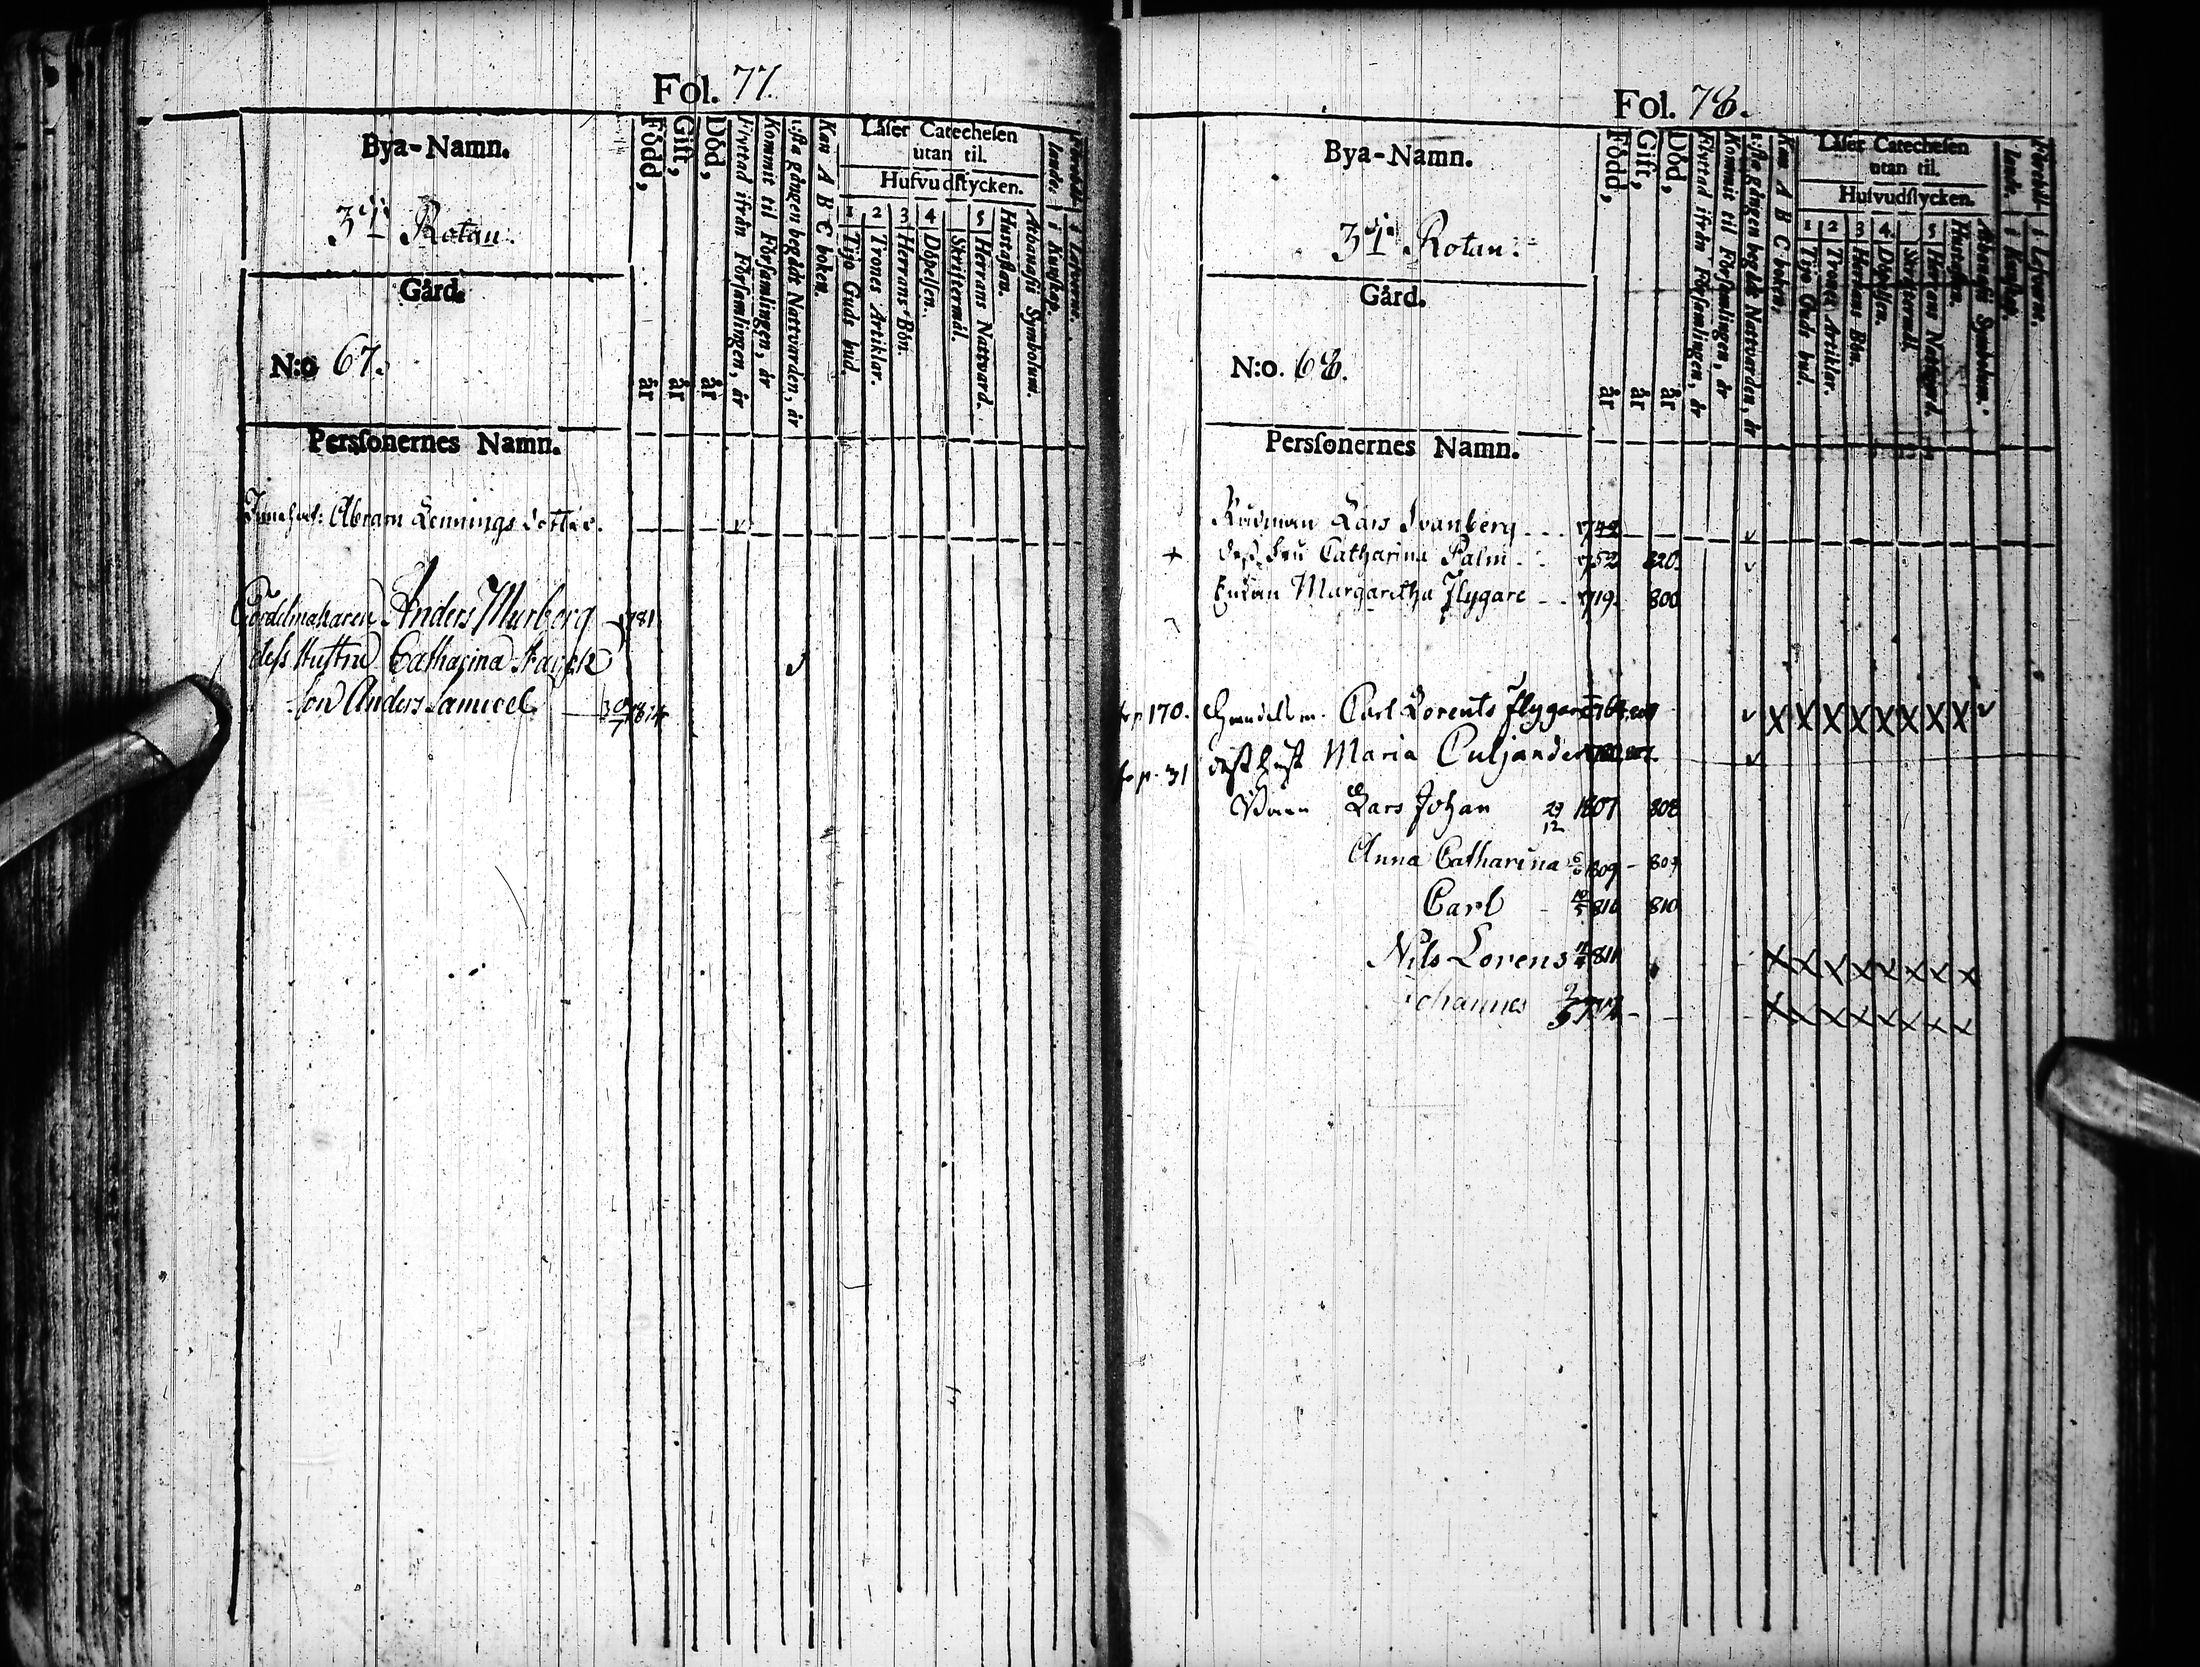 Fol. 77.
Bya-Namn.
3dj Rotan.
Gård.
N:o 67.
Perſonernes Namn.
Född, år
Gift, år
Död, år
Flyttad ifrån Förſamlingen, år
Kommit til Förſamlingen, år
1:ſta gången begådt Nattvarden, år
Kan A B C boken.
Läſer Catecheſen
utan til.
Hufvudſtycken.
1 Tijo Guds bud.
2 Trones Artiklar.
3 Herrans Bön.
4 Döpelſen.
Skriftermål.
5 Herrans Nattvard.
Huſtaflan.
Athanaſii Symbolum.
i Kunſkap.
i Lefverne.
Abram Lennings dotter.
Anders Murberg 1781
deſs Huſtru Catharina
ſon Anders Samuel 30/7 1814
Fol. 78.
Bya-Namn.
3dj Rotan.
Gård.
N:o. 68.
Perſonernes Namn.
Född, år
Gift, år
Död, år
Flyttad ifrån Förſamlingen, år
Kommit til Förſamlingen, år
1:ſta gången begådt Nattvarden, år
Kan A B C boken.
Läſer Catecheſen
utan til.
Hufvudſtycken.
1 Tijo Guds bud.
2 Trones Artiklar.
3 Herrans Bön.
4 Döpelſen.
Skriftermål.
5 Herrans Nattvard.
Huſtaflan.
Athanaſii Symbolum.
i Kunſkap.
i Lefverne.
Rådman Lars Svanberg 1742
+ deſs Fru Catharina Palm 752 820.
Enkan Margaretha Flygare 719. 800
p 170. Handelsm. Carl Lorents Flygare
p. 31 deſs Huſt Maria Culjander
Barn Lars Johan 29/12 1807 808
Anna Catharina 1809 - 809
Carl 810 810
Nils Lorens 811
Johannes